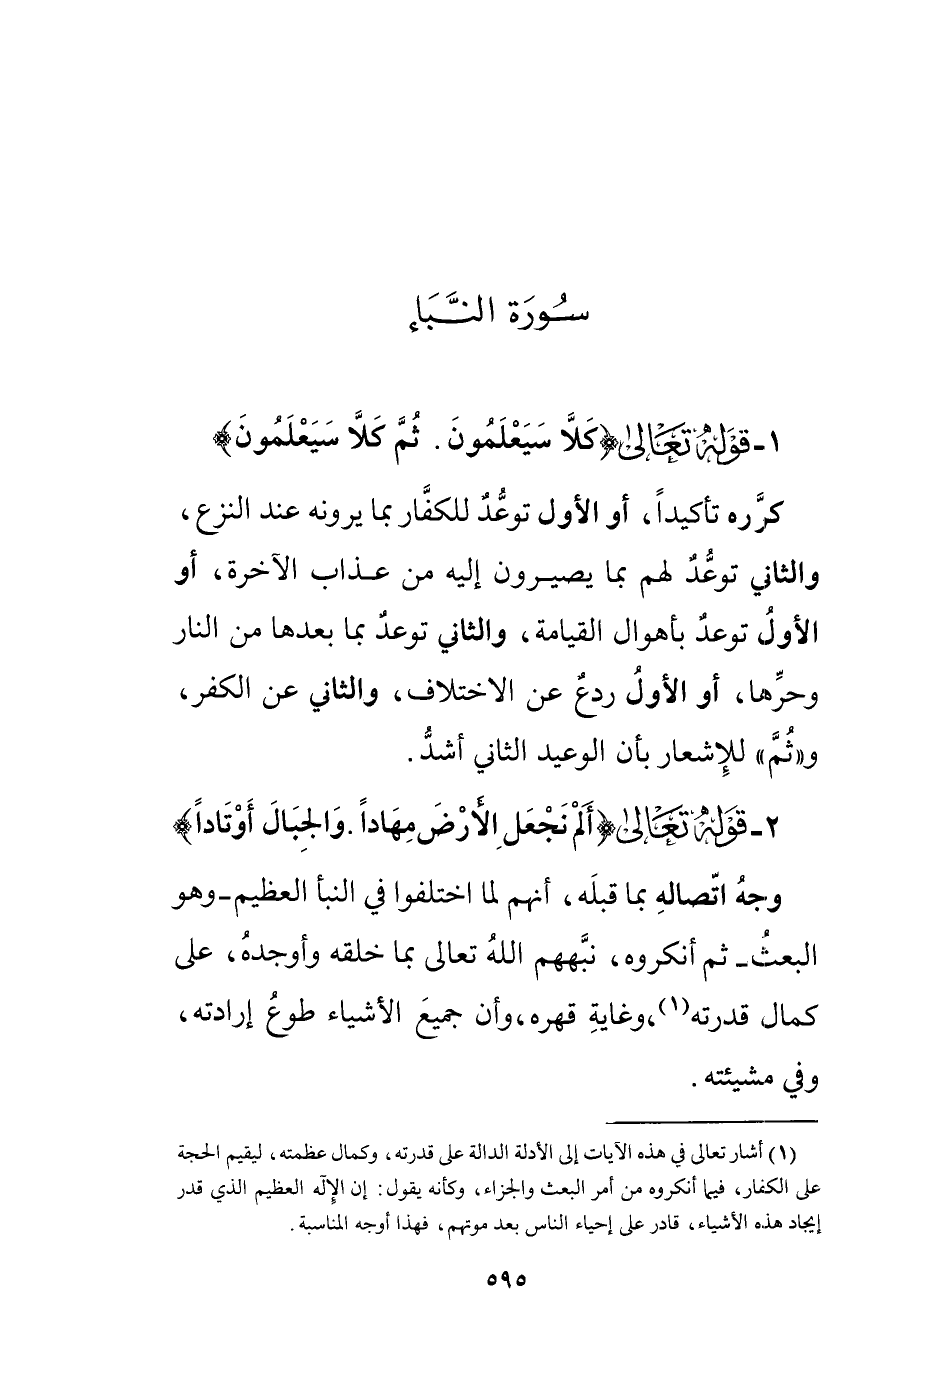 سُورَة النَّبَإِ
١ـ قَوْلُهُ تَعَالَىٰ ﴿كَلَّا سَيَعْلَمُونَ . ثُمَّ كَلَّا سَيَعْلَمُونَ﴾
كرَّره تأكيداً، أو الأول توعُّدٌ للكفَّار بما يرونه عند النزع،
والثاني توعُّدٌ لهم بما يصيرون إليه من عذاب الآخرة، أو
الأولُ توعدٌ بأهوال القيامة، والثاني توعدٌ بما بعدها من النار
وحرِّها، أو الأولُ ردعٌ عن الاختلاف، والثاني عن الكفر،
و«ثُمَّ» للإِشعار بأن الوعيد الثاني أشدُّ.
٢ـ قَوْلُهُ تَعَالَىٰ ﴿أَلَمْ نَجْعَلِ الأَرْضَ مِهَاداً . وَالجِبَالَ أَوْتَاداً﴾
وجهُ اتّصالهِ بما قبلَه، أنهم لما اختلفوا في النبأ العظيم ـ وهو
البعثُ ـ ثم أنكروه، نبَّههم اللهُ تعالى بما خلقه وأوجدهُ، على
كمال قدرته(١)، وغايةِ قهره، وأن جميعَ الأشياء طوعُ إرادته،
وفي مشيئته.
(١) أشار تعالى في هذه الآيات إلى الأدلة الدالة على قدرته، وكمال عظمته، ليقيم الحجة
على الكفار، فيما أنكروه من أمر البعث والجزاء، وكأنه يقول: إن الإِلَه العظيم الذي قدر
إيجاد هذه الأشياء، قادر على إحياء الناس بعد موتهم، فهذا أوجه المناسبة.
٥٩٥